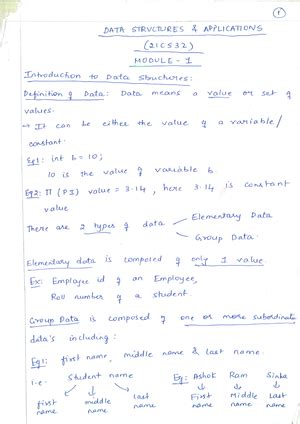 1
DATA STRUCTURES & APPLICATIONS
(21CS32)
MODULE - 1
Introduction to Data Structures:
Definition of Data: Data means a value or set of
values.
→ It can be either the value of a variable/
constant.
Eg1: int b = 10;
10 is the value of variable b.
Eg2: Π (PI) value = 3.14, here 3.14 is constant
value
There are 2 types of data
Elementary Data
Group Data.
Elementary data is composed of only 1 value.
Ex: Employee id of an Employee,
Roll number of a student.
Group Data is composed of one or more subordinate
data's including:
Eg1: first name, middle name & last name.
i.e. Student name
first name
middle name
last name
Eg: Ashok Ram Sinha
First name
Middle name
Last name